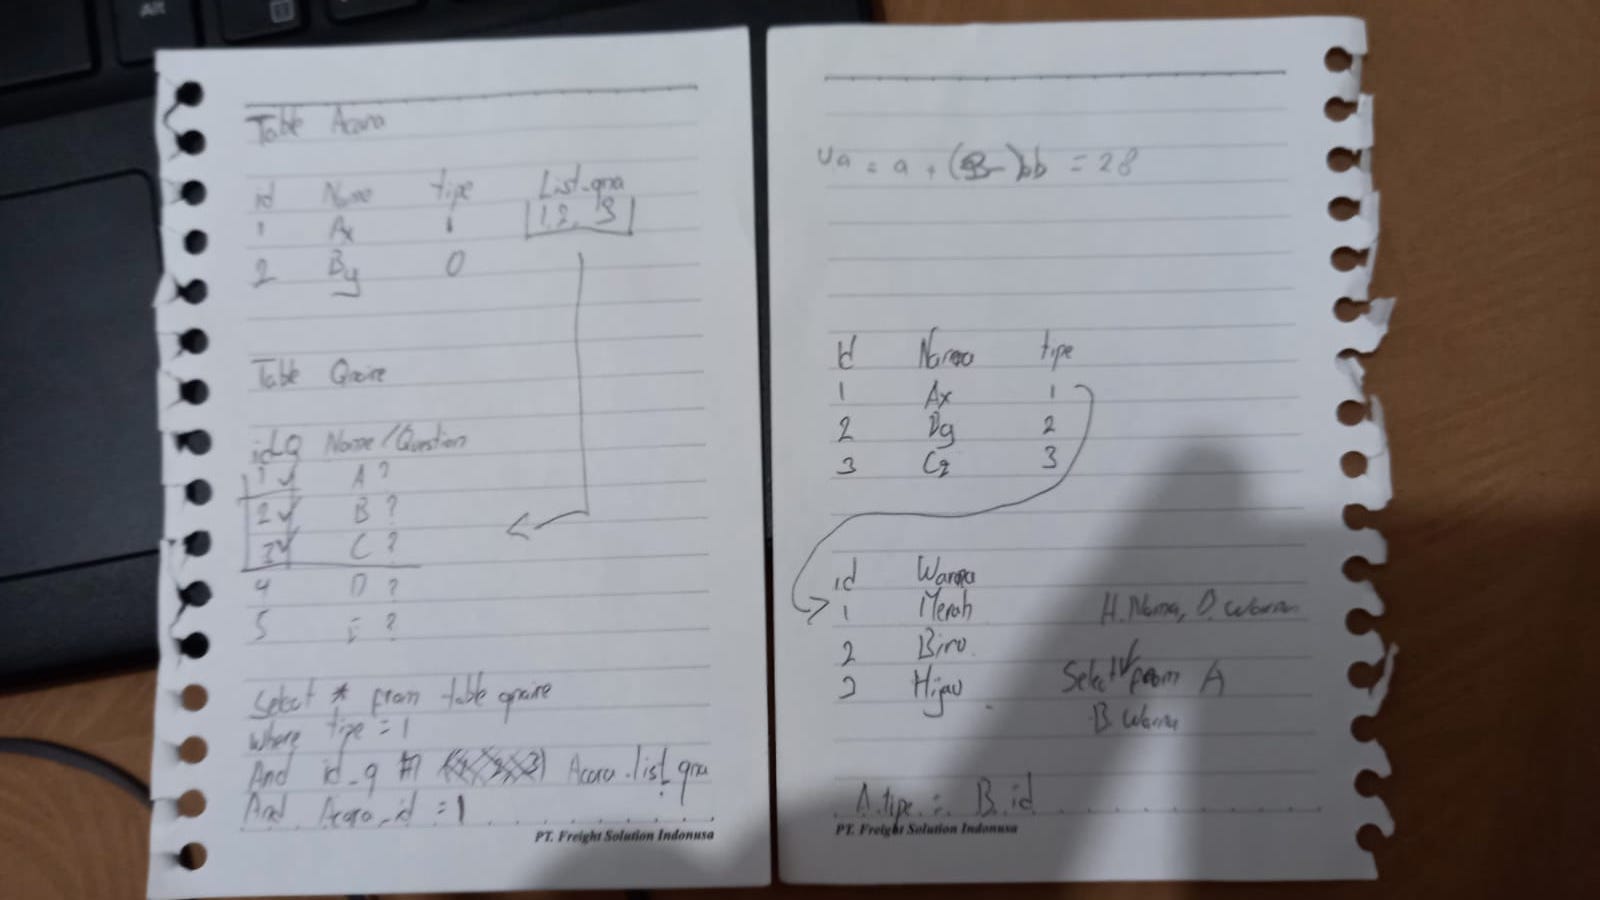 Alt
Table Acara
id Name tipe List_qna
1 Ax 1 1, 2, 3
2 By 0
Table Qnaire
id_Q Name/Question
1 ✓ A ?
2 ✓ B ?
3 ✓ C ?
4 D ?
5 E ?
Select * from table qnaire
where tipe = 1
And id_q in Acara.list_qna
And Acara_id = 1
PT. Freight Solution Indonusa
= 28
Id Nama tipe
1 Ax 1
2 By 2
3 Cz 3
id Warna
1 Merah
2 Biru
3 Hijau
A. Nama, B. Warna
Select from A
B. Warna
A.tipe = B.id
PT. Freight Solution Indonusa